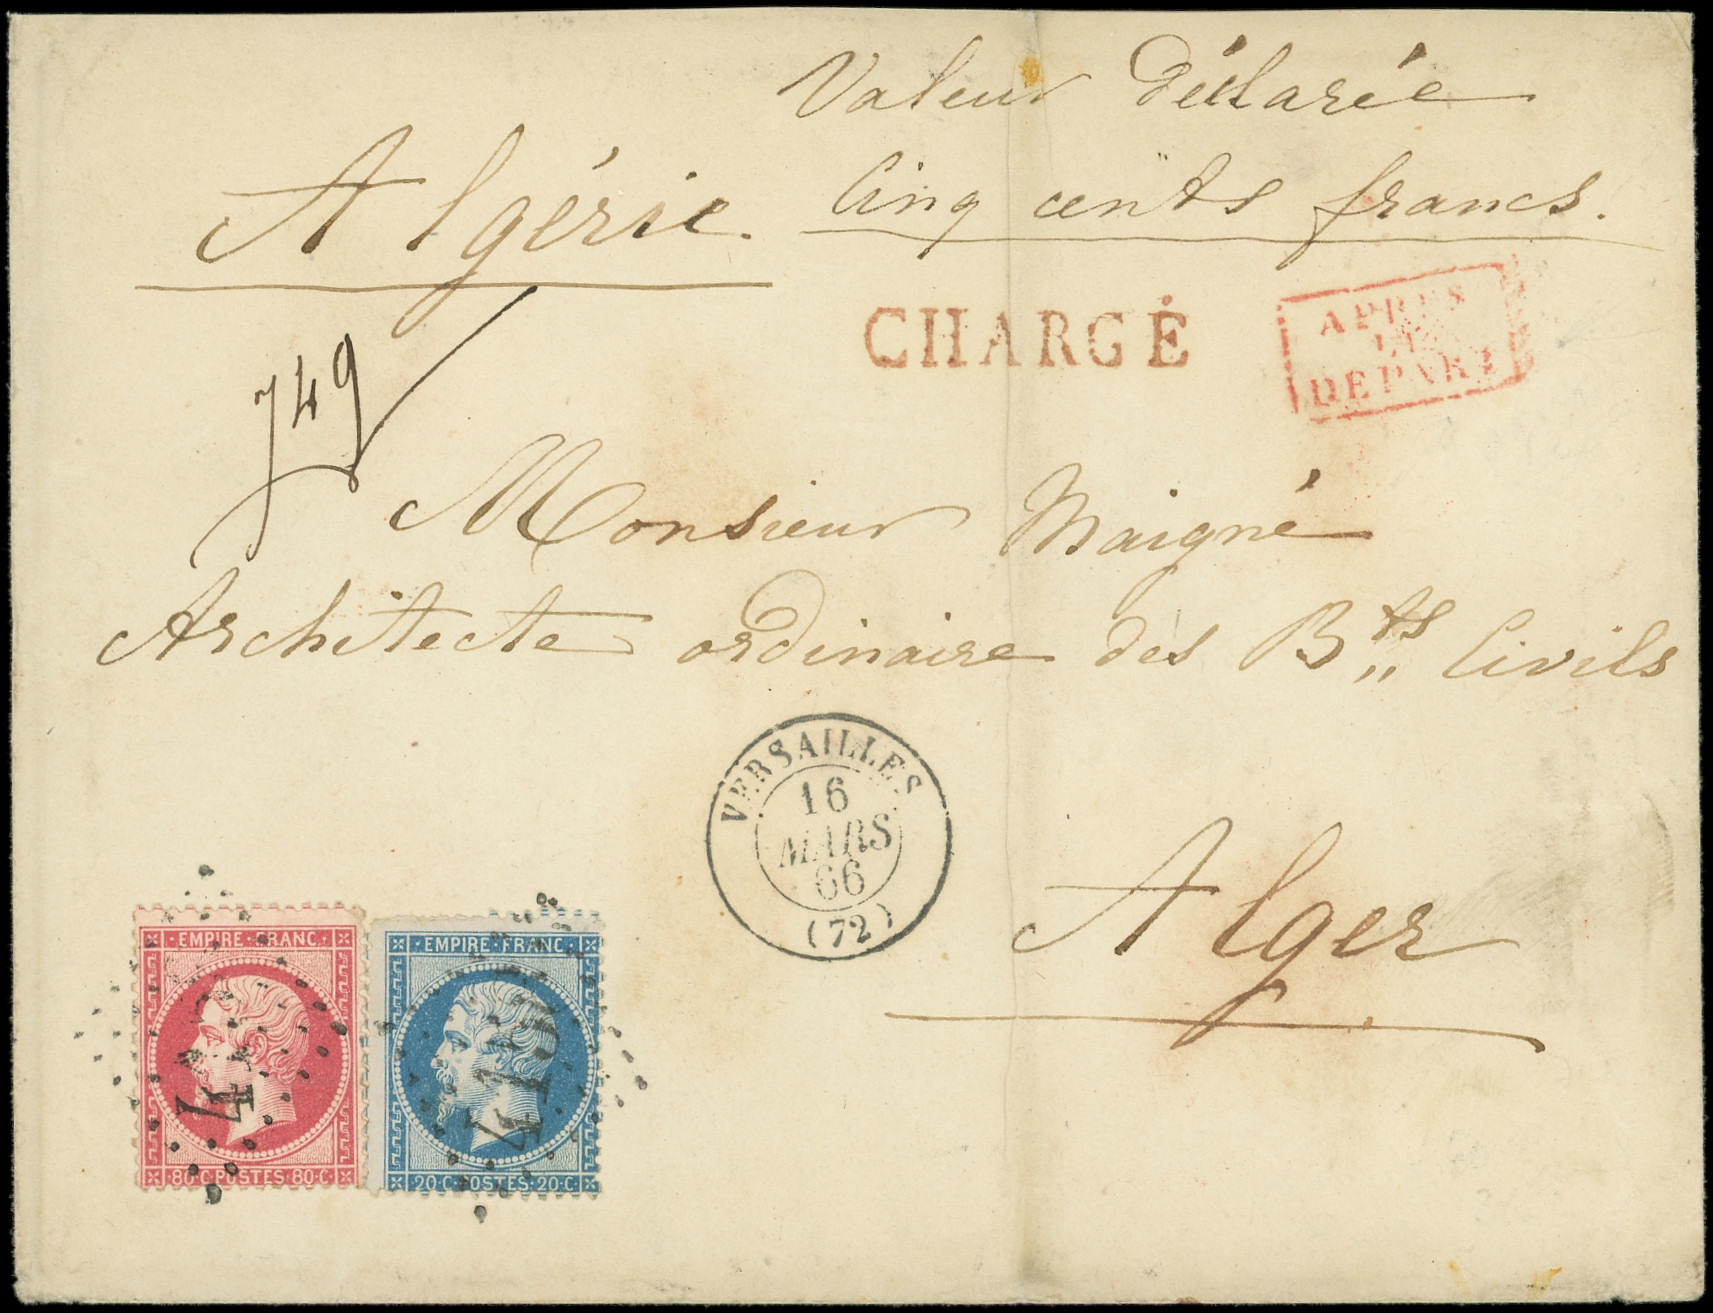 Valeur déclarée
Algérie. Cinq cents francs.
CHARGÉ
APRÈS
LE
DÉPART
749
Monsieur Maigné
Architecte ordinaire des Bts Civils
VERSAILLES
16
MARS
66
(72)
Alger
EMPIRE FRANC
80·C·POSTES·80·C
EMPIRE·FRANC
20·C·POSTES·20·C